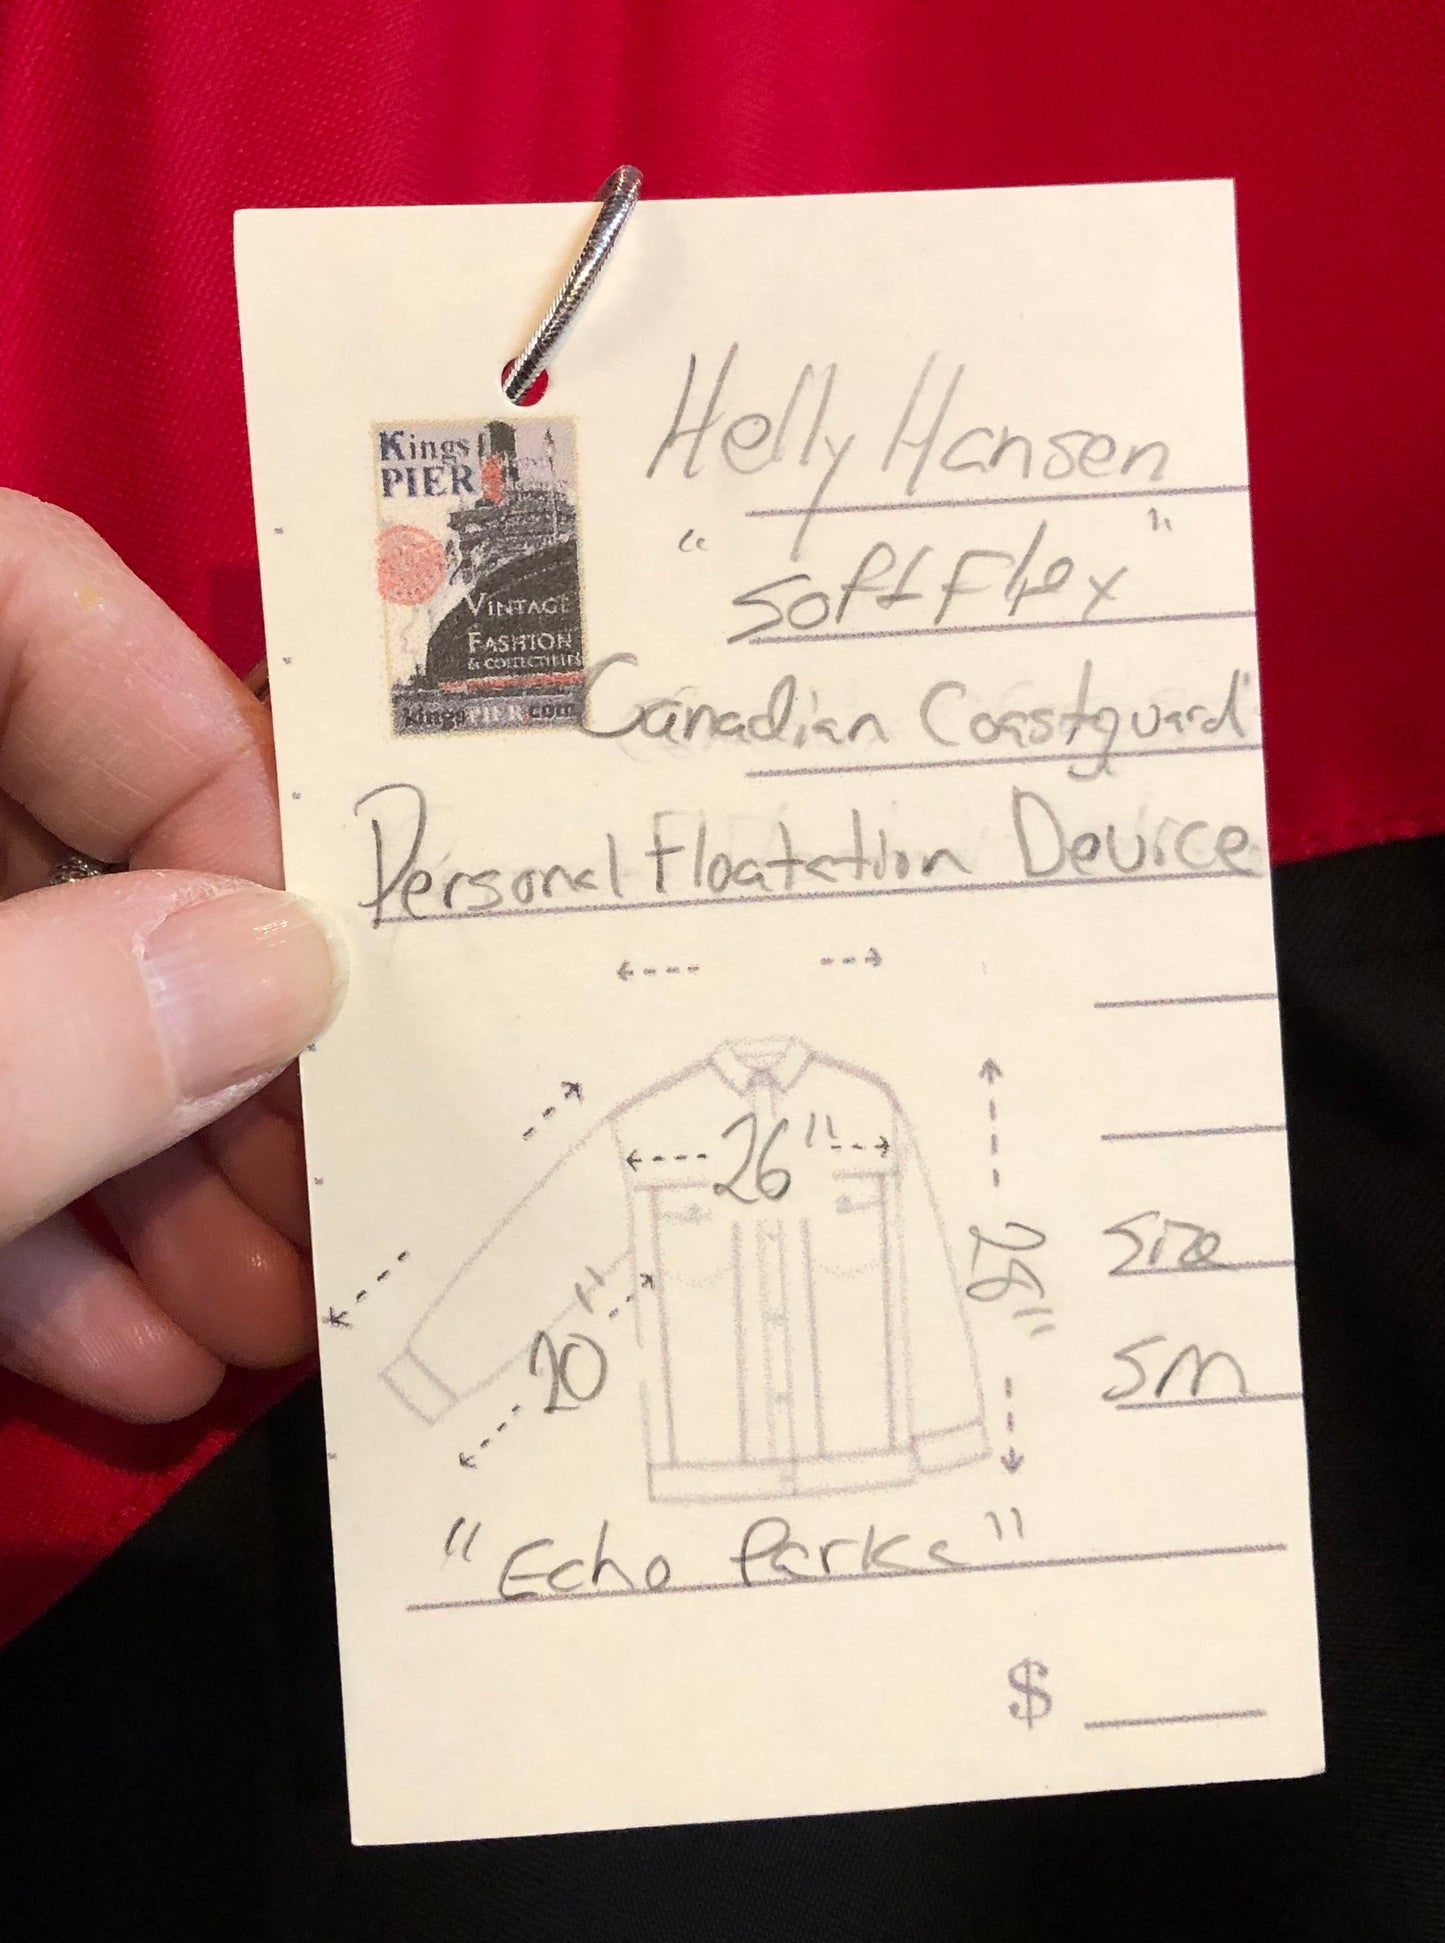 Kings
PIER
VINTAGE
FASHION
& COLLECTIBLES
kingsPIER.com
Helly Hansen
"Soft Flex"
Canadian Coastguard"
Personal Floatation Device
26"
20"
Size
SM
"Echo Parka"
$